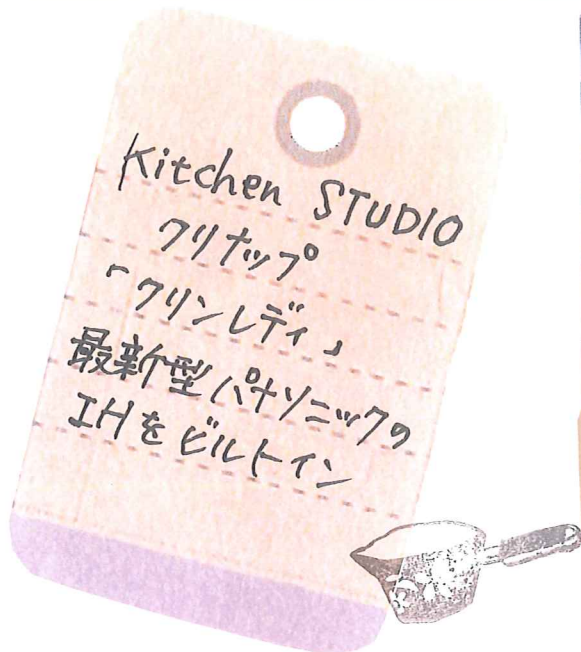 Kitchen STUDIO
クリナップ
「クリンレディ」
最新型パナソニックの
IHをビルトイン